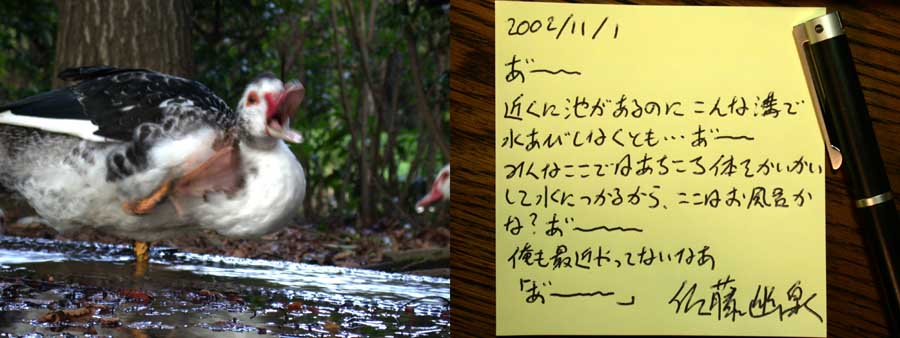 2002/11/1
あ゛〜〜
近くに池があるのに こんな溝で
水あびしなくとも… あ゛〜〜
みんなここであちこち体をかいかい
して水につかるから、ここはお風呂か
な? あ゛〜〜〜
俺も最近やってないなあ
「あ゛〜〜〜」 佐藤